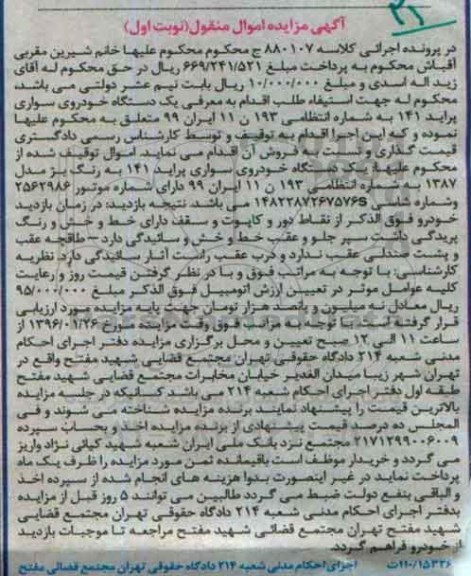 آگهی مزایده اموال منقول(نوبت اول)
در پرونده اجرائی کلاسه ۸۸۰۱۰۷ ج محکوم محکوم علیها خانم شیرین مقربی
آقباش محکوم به پرداخت مبلغ ۶۶۹/۲۴۱/۵۲۱ ریال در حق محکوم له آقای
زید اله اسدی و مبلغ ۱۰/۰۰۰/۰۰۰ ریال بابت نیم عشر دولتی می باشد،
محکوم له جهت استیفاء طلب اقدام به معرفی یک دستگاه خودروی سواری
پراید ۱۴۱ به شماره انتظامی ۱۹۳ ن ۱۱ ایران ۹۹ متعلق به محکوم علیها
نموده و کپه این اجرا اقدام به توقیف و توسط کارشناس رسمی دادگستری
قیمت گذاری و نسبت به فروش آن اقدام می نماید. اموال توقیف شده از
محکوم علیها: یک دستگاه خودروی سواری پراید ۱۴۱ به رنگ بژ مدل
۱۳۸۷ به شماره انتظامی ۱۹۳ ن ۱۱ ایران ۹۹ دارای شماره موتور ۲۵۶۲۹۸۶
وشماره شاسی S۱۴۸۲۲۸۷۲۶۷۵۷۶ می باشد. نتیجه بازدید: در زمان بازدید
خودرو فوق الذکر از نقاط دور و کاپوت و سقف دارای خط و خش و رنگ
پریدگی داشت سپر جلو و عقب خط و خش و سائیدگی دارد – طاقچه عقب
و پشت صندلی عقب ندارد و درب عقب راست آثار سائیدگی دارد. نظریه
کارشناسی: با توجه به مراتب فوق و با در نظر گرفتن قیمت روز و رعایت
کلیه عوامل موثر در تعیین ارزش اتومبیل فوق الذکر مبلغ ۹۵/۰۰۰/۰۰۰
ریال معادل نه میلیون و پانصد هزار تومان جهت پایه مزایده مورد ارزیابی
قرار گرفته است. با توجه به مراتب فوق وقت مزایده مورخ ۱۳۹۶/۰۱/۲۶ از
ساعت ۱۱ الی ۱۲ صبح تعیین و محل برگزاری مزایده دفتر اجرای احکام
مدنی شعبه ۲۱۴ دادگاه حقوقی تهران مجتمع قضایی شهید مفتح واقع در
تهران شهر زیبا میدان الغدیر خیابان مخابرات مجتمع قضایی شهید مفتح
طبقه اول دفتر اجرای احکام شعبه ۲۱۴ می باشد کسانیکه در جلسه مزایده
بالاترین قیمت را پیشنهاد نمایند برنده مزایده شناخته می شوند و فی
المجلس ده درصد قیمت پیشنهادی از برنده مزایده اخذ و بحساب سپرده
۲۱۷۱۲۹۹۰۰۶۰۰۹ مجتمع نزد بانک ملی ایران شعبه شهید کیائی نژاد واریز
می گردد و خریدار موظف است باقیمانده ثمن مورد مزایده را ظرف یک ماه
پرداخت نماید در غیر اینصورت بدوا هزینه های انجام شده از سپرده اخذ
و الباقی بنفع دولت ضبط می گردد طالبین می توانند ۵ روز قبل از مزایده
بدفتر اجرای احکام مدنی شعبه ۲۱۴ دادگاه حقوقی تهران مجتمع قضایی
شهید مفتح تهران مجتمع قضائی شهید مفتح مراجعه تا موجبات بازدید
از خودرو فراهم گردد.
۱۱۰/۱۵۳۲۶ت اجرای احکام مدنی شعبه ۲۱۴ دادگاه حقوقی تهران مجتمع قضائی مفتح